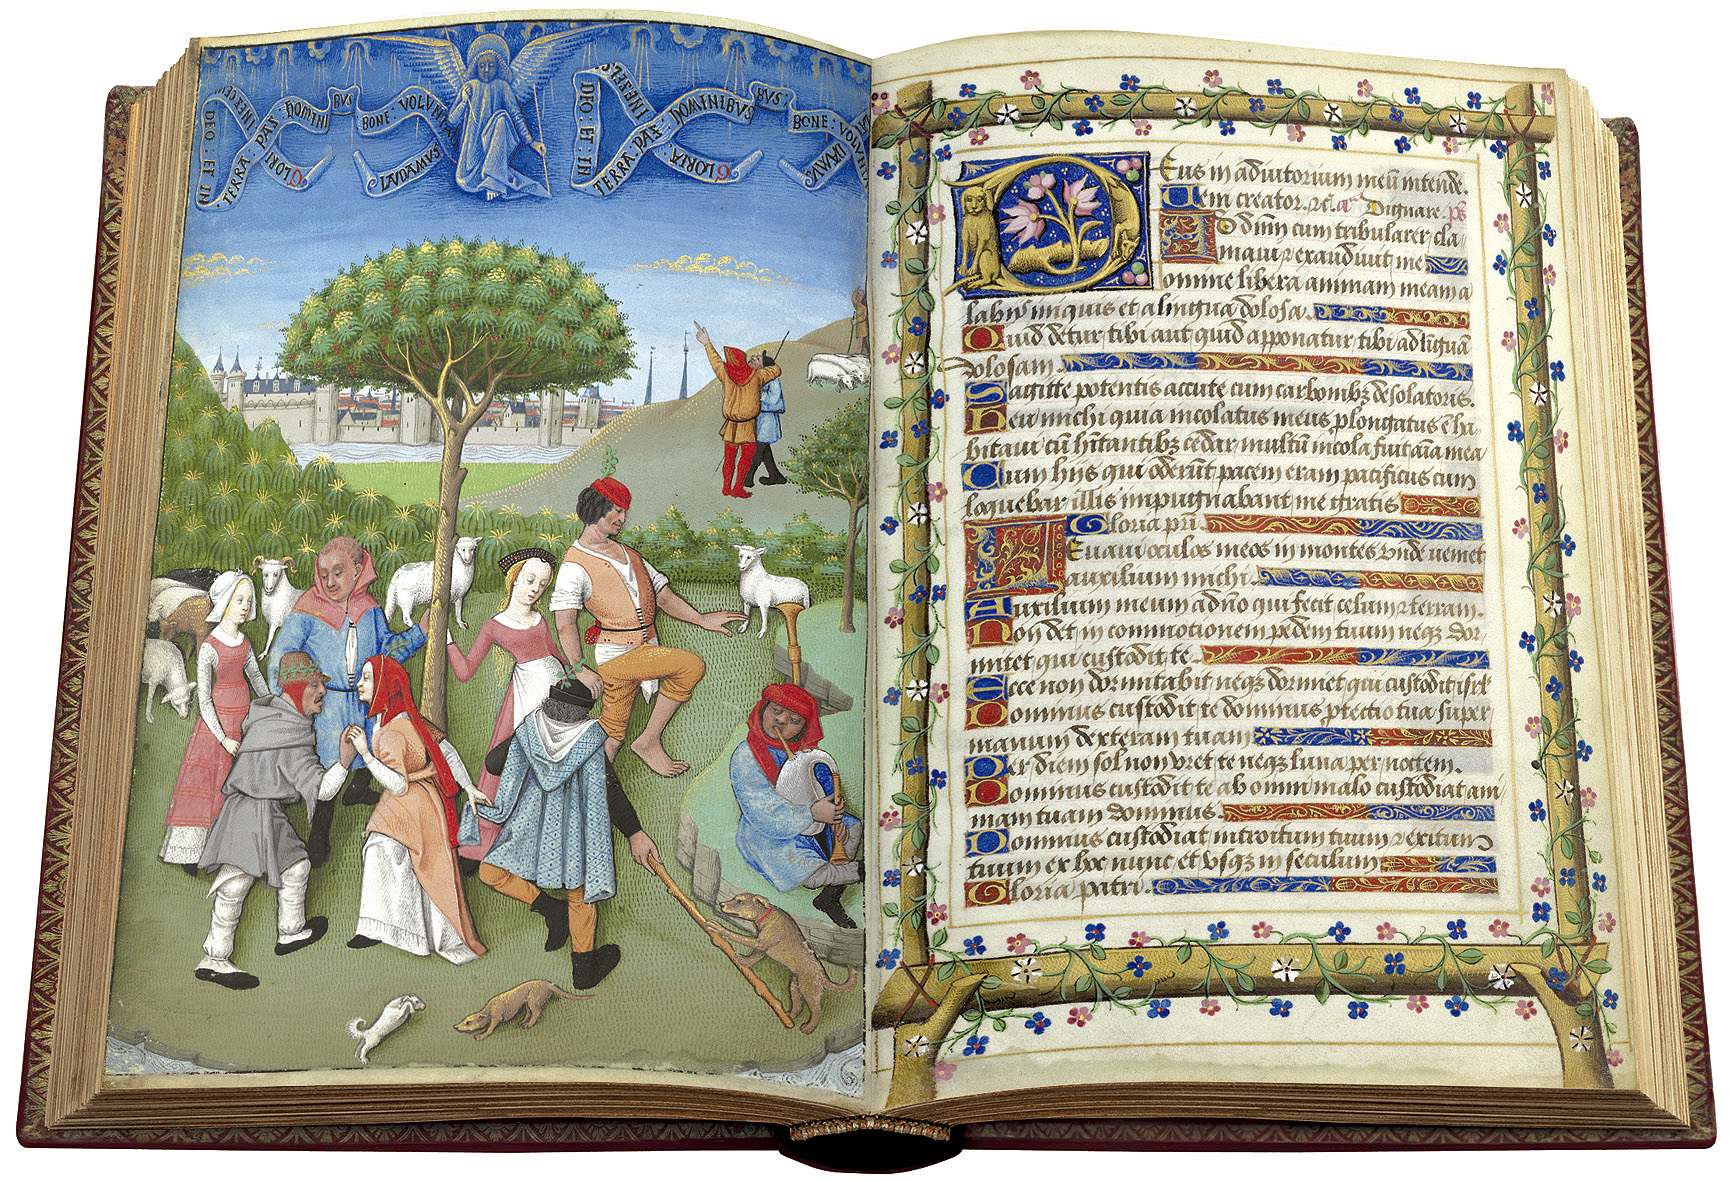 DEO : ET IN
TERRA : PAX : HOMINI
BVS
BONE : VOLVNTA
LAVDAMVS
GLORI
DEO : ET IN
TERRA . PAX : HOMINIBVS
BVS :
BONE : VOLVN
GLORIA :
Deus in adiutorium meū intende.
Veni creator. Dignare. ps
Ad dn̄m cum tribularer cla
maui ⁊ exaudiuit me
Domine libera animam meam a
labijs iniquis et a lingua dolosa.
Quid detur tibi aut quid apponatur tibi ad linguā
dolosam
Sagitte potentis accute cum carbonibꝫ desolatoris.
Heu michi quia incolatus meus ꝓlongatus ē ha
bitaui cū hītantibꝫ cedar, multū incola fuit aīa mea
Cum hijs qui oderūt pacem eram pacificus cum
loquebar illis impugnabant me gratis
Gloria pri.
Leuaui oculos meos in montes vnde ueniet
auxilium michi.
Auxilium meum a dn̄o qui fecit celum ⁊ terram.
Non det in commotionem pedem tuum neqꝫ dor
mitet qui custodit te.
Ecce non dormitabit neqꝫ dormiet qui custodit isrl
Dominus custodit te dominus ꝓtectio tua super
manum dexteram tuam
Per diem sol non vret te neqꝫ luna per noctem.
Dominus custodit te ab omni malo custodiat ani
mam tuam dominus.
Dominus custodiat introitum tuum ⁊ exitum
tuum ex hoc nunc et vsqꝫ in seculum
Gloria patri.